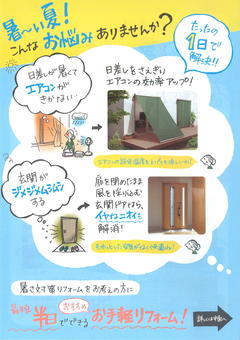 暑〜い夏!
こんなお悩みありませんか?
たったの
1日で
解決!!
日差しが暑くて
エアコンが
きかない…
日差しをさえぎり
エアコンの効率アップ!
玄関が
ジメジメムシムシ
する
扉を閉めたまま
風を採り込む
玄関ドアなら、
イヤなニオイも
解消!
暑さ対策リフォームをお考えの方に
最短
半日でできる
おすすめ
お手軽リフォーム!